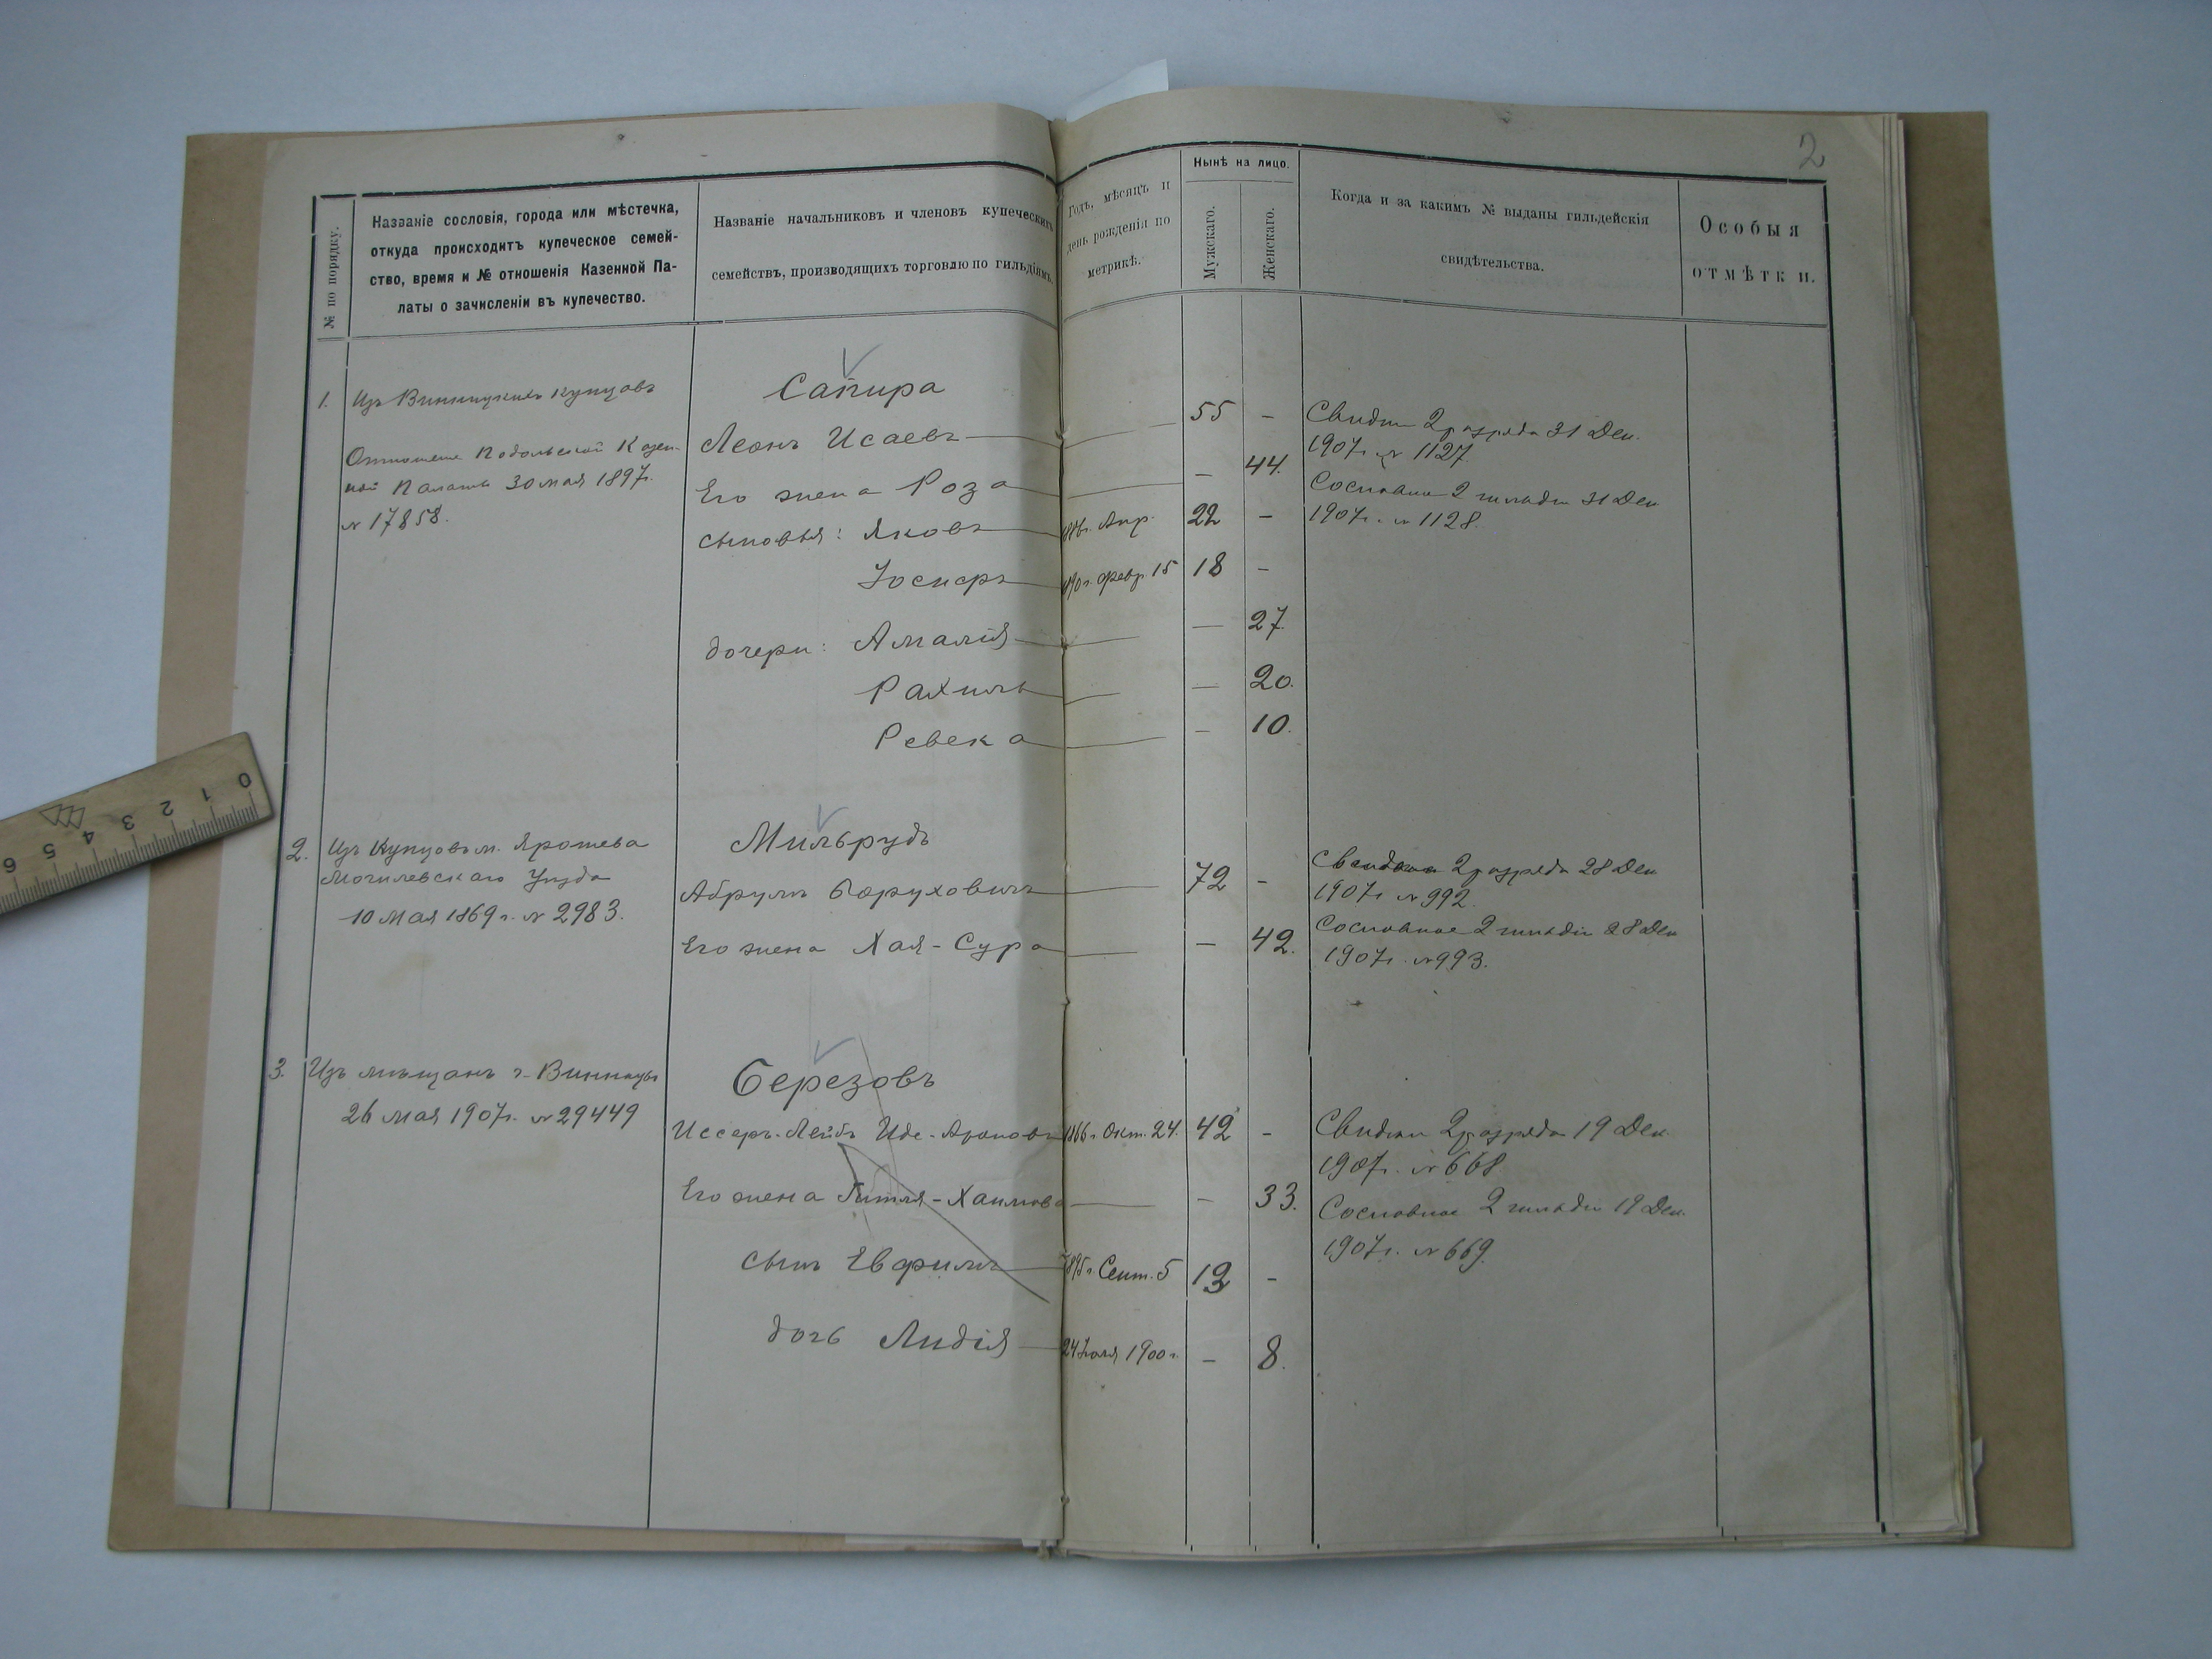 2
№ по порядку.
Названіе сословія, города или мѣстечка,
откуда происходитъ купеческое семей-
ство, время и № отношенія Казенной Па-
латы о зачисленіи въ купечество.
Названіе начальниковъ и членовъ купеческихъ
семействъ, производящихъ торговлю по гильдіямъ.
Годъ, мѣсяцъ и
день рожденія по
метрикѣ.
Нынѣ на лицо.
Мужскаго.
Женскаго.
Когда и за какимъ № выданы гильдейскія
свидѣтельства.
Особыя
отмѣтки.
1. Изъ Винницкихъ Купцовъ
Отношеніе Подольской Казен-
ной Палаты 30 мая 1897г.
№ 17858.
Сапира
Леонъ Исаевъ 55 -
Его жена Роза - 44.
сыновья: Яковъ 1886г. Апр. 22 -
Іосифъ 1890г. Февр. 15 18 -
дочери: Амалія - 27.
Рахиль - 20.
Ревека - 10.
Свидѣт 2 разряда 31 Дек.
1907г. № 1127.
Сословное 2 гильдіи 31 Дек
1907г. № 1128.
2. Изъ Купцовъ м. Ярошева
Могилевскаго Уѣзда
10 Мая 1869г. № 2983.
Мильрудъ
Абрумъ Боруховичъ 72 -
Его жена Хая-Сура - 42.
2 разряда 28 Дек
1907г № 992.
Сословное 2 гильдіи 28 Дек
1907г. № 993.
3. Изъ мѣщанъ г. Винницы
26 Мая 1907г. № 29449
Березовъ
Иссеръ-Лейбъ Иде-Ароновъ 1866г. Окт. 24. 42 -
Его жена Гитля-Хаимова - 33.
сынъ Ефримъ 1895г. Сент. 5 13 -
дочь Лидія 24 Іюля 1900г. - 8.
Свидѣт 2 разряда 19 Дек.
1907г. № 668.
Сословное 2 гильдіи 19 Дек.
1907г. № 669.
0 1 2 3 4 5 6